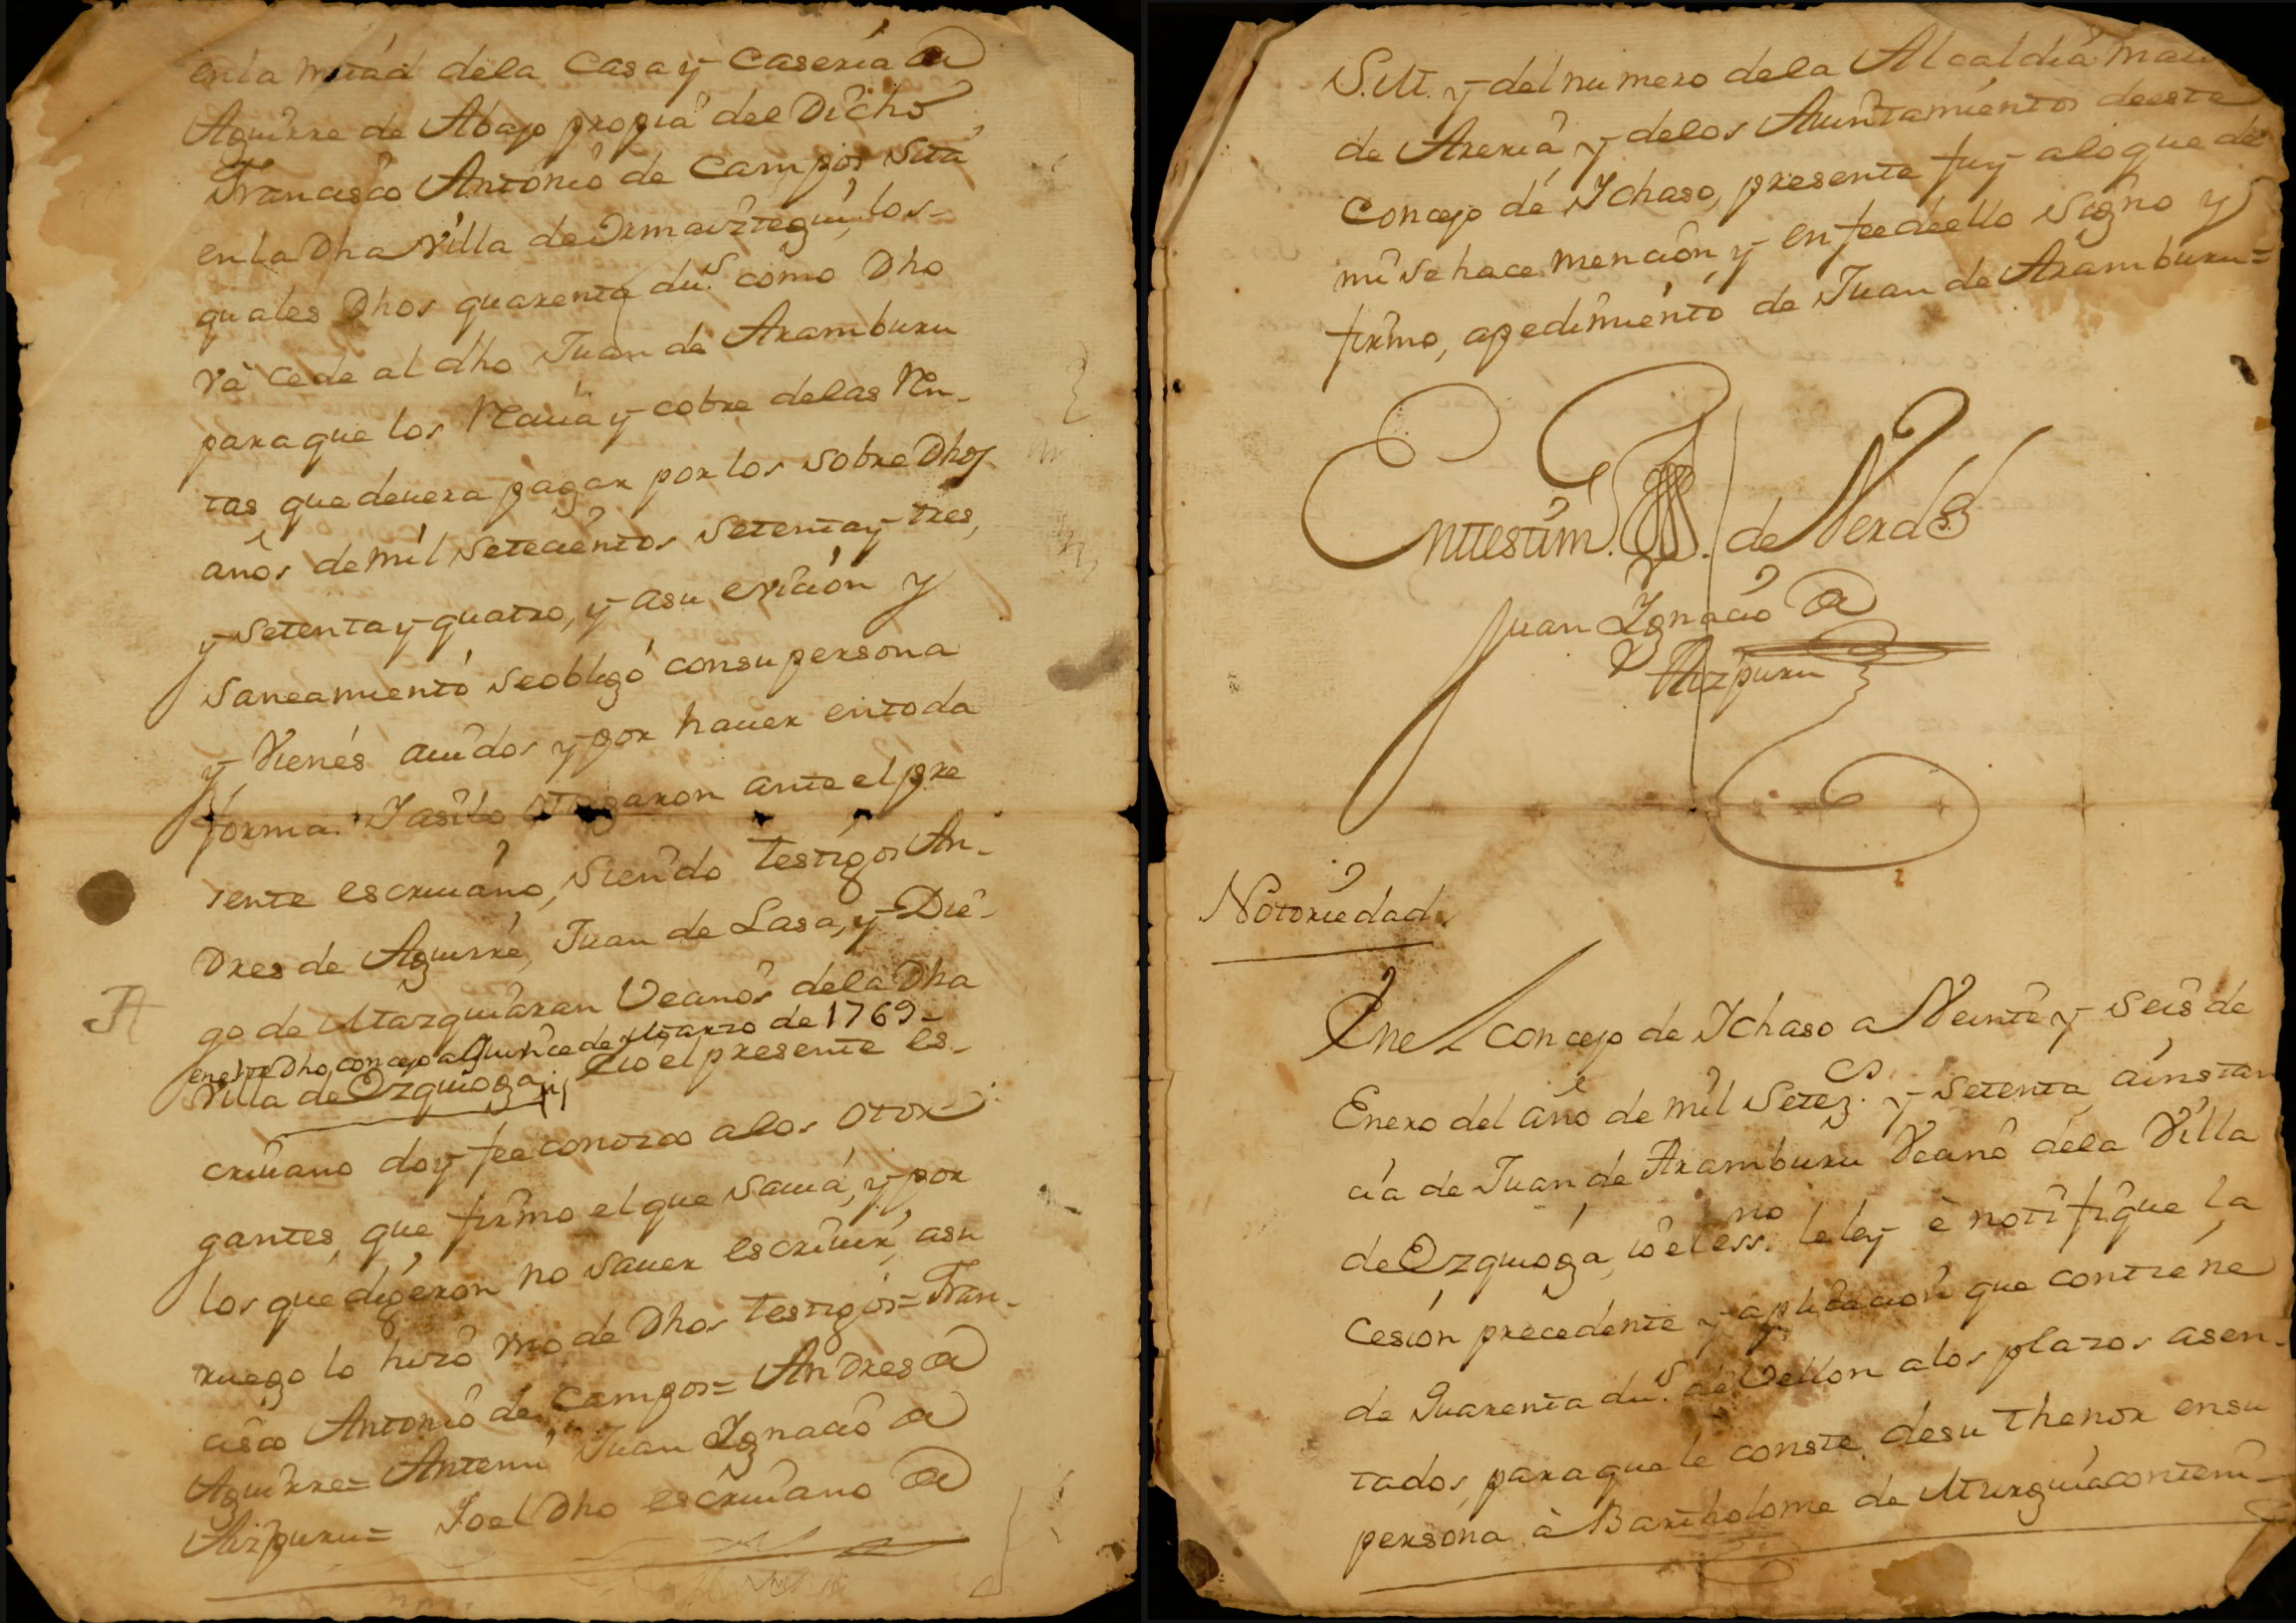 en la mitad dela Casa y Caseria de
Aguirre de Abajo propia del Dicho
Francisco Antonio de Campos sita
en la Dha villa de Ormaiztegui, los-
quales Dhos quarenta du.s como Dho
va cede al dho Juan de Aramburu
para que los Reciua y cobre delas Ren-
tas que deuera pagar por los sobre Dhos
años de mil setecientos setenta y tres,
y setenta y quatro, y asu evicion y
saneamiento se obligó con su persona
y Vienes auidos y por hauer en toda
forma. Y asilo otorgaron ante el pre
sente escriuano, siendo testigos An-
dres de Aguirre, Juan de Lasa, y Die-
go de Mazguiaran Vecinos dela Dha
en este Dho, concejo a Quince de Marzo de 1769-
Villa de Ezquioga, Eio el presente es-
criuano doy fee conozco alos otor
gantes, que firmo el que sauia, y por
los que digeron no sauer escriuir, asu
ruego lo hizo vno de Dhos testigos = Fran-
cisco Antonio de Campos = Andres de
Aguirre = Antemi Juan Ignacio de
Aizpuru = Yo el Dho escriuano de
S.M. y del numero dela Alcaldia maior
de Areria, y delos Auntamientos de este
Concejo de Ichaso, presente fuy alo que de
mi se hace mencion, y en fee de ello signo y
firmo, apedimiento de Juan de Aramburu =
En testim.o de Verdd
Juan Ignacio de
Aizpuru
Notoriedad
En el Concejo de Ichaso a Veinte y seis de
Enero del año de mil setez.s y setenta, ainstan
cia de Juan de Aramburu Vecino dela Villa
de Ezquioga, io el ess.no le ley è notifique la
Cesion precedente y aplicacion que contiene
de Quarenta du.s de Vellon alos plazos asen-
tados, para que le conste desu thenor en su
persona à Bartholome de Murguia conteni-